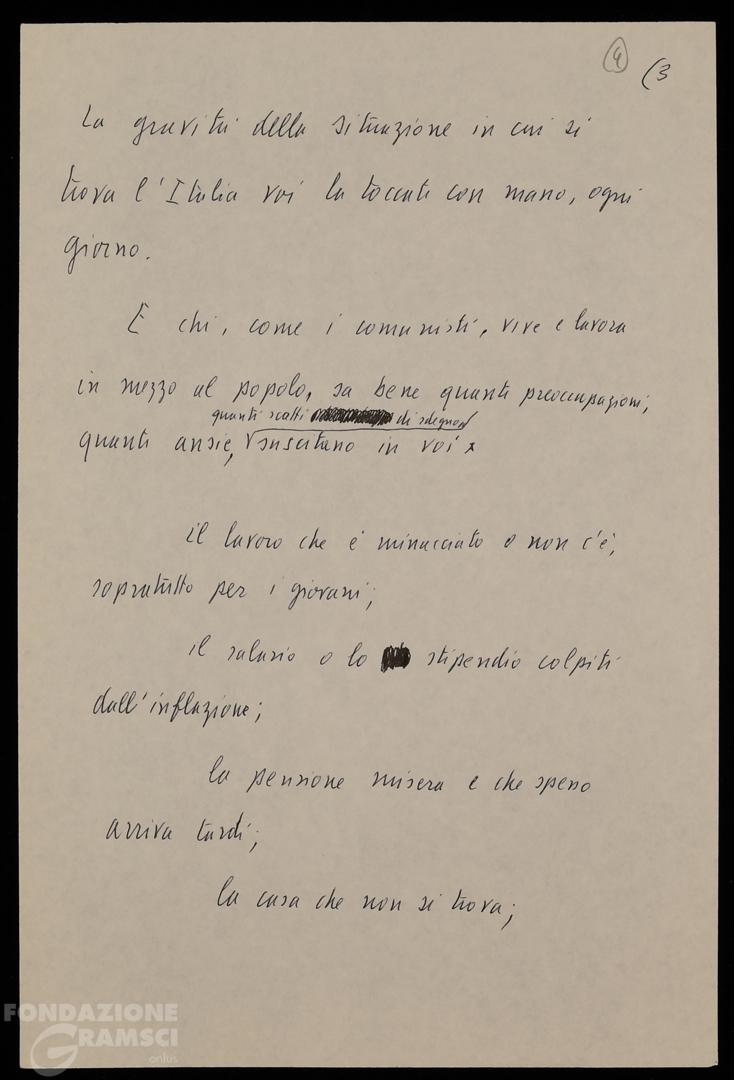 4 (3
La gravità della situazione in cui si
trova l'Italia voi la toccate con mano, ogni
giorno.
E chi, come i comunisti, vive e lavora
in mezzo al popolo, sa bene quante preoccupazioni,
quanti scatti di sdegno
quante ansie, suscitano in voi
il lavoro che è minacciato o non c'è,
sopratutto per i giovani;
il salario o lo stipendio colpiti
dall'inflazione;
la pensione misera e che spesso
arriva tardi;
la casa che non si trova;
FONDAZIONE
GRAMSCI
onlus